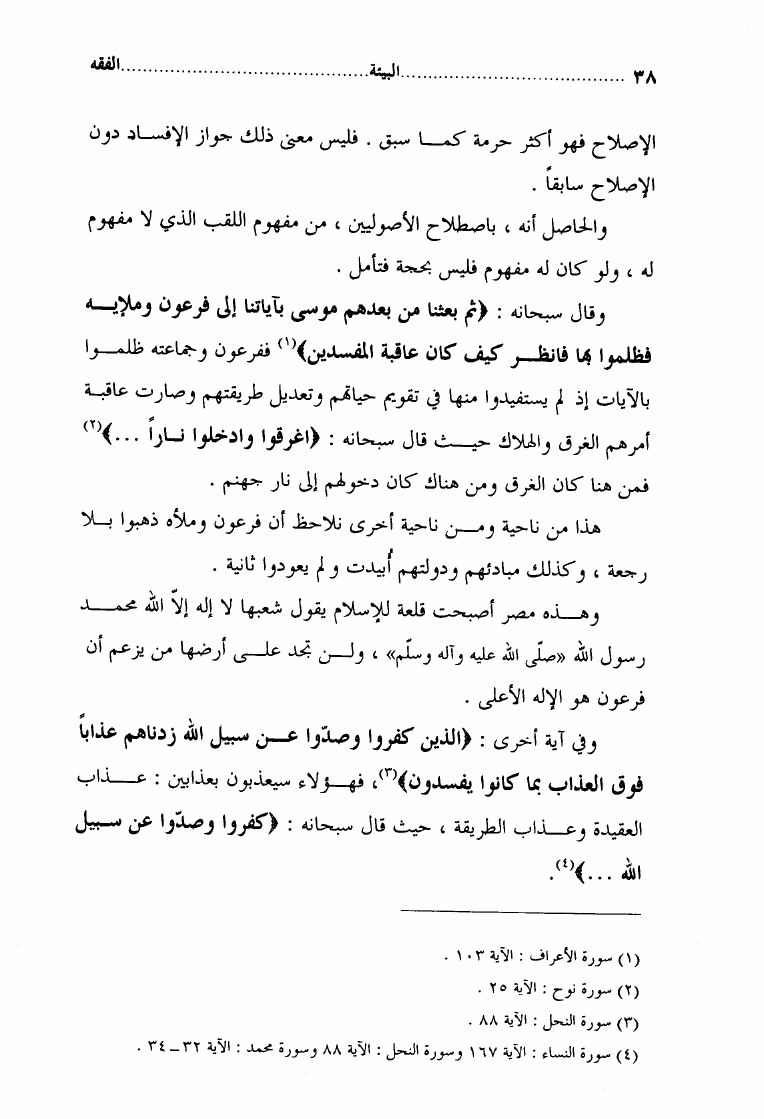 ٣٨ ........................................ البيئة ........................................ الفقه
الإصلاح فهو أكثر حرمة كمـا سبق . فليس معنى ذلك جواز الإفسـاد دون
الإصلاح سابقاً .
والحاصل أنه ، باصطلاح الأصوليين ، من مفهوم اللقب الذي لا مفهوم
له ، ولو كان له مفهوم فليس بحجة فتأمل .
وقال سبحانه : ﴿ثم بعثنا من بعدهم موسى بآياتنا إلى فرعون وملإيـه
فظلموا بها فانظـر كيف كان عاقبة المفسدين﴾(١) ففرعون وجماعته ظلمـوا
بالآيات إذ لم يستفيدوا منها في تقويم حياتهم وتعديل طريقتهم وصارت عاقبـة
أمرهم الغرق والهلاك حيـث قال سبحانه : ﴿اغرقوا وادخلوا نـاراً ...﴾(٢)
فمن هنا كان الغرق ومن هناك كان دخولهم إلى نار جهنم .
هذا من ناحية ومـن ناحية أخرى نلاحظ أن فرعون وملأه ذهبوا بـلا
رجعة ، وكذلك مبادئهم ودولتهم أُبيدت و لم يعودوا ثانية .
وهـذه مصر أصبحت قلعة للإسلام يقول شعبها لا إله إلاّ الله محمـد
رسول الله «صلّى الله عليه وآله وسلّم» ، ولـن تجد علـى أرضها من يزعم أن
فرعون هو الإله الأعلى .
وفي آية أخرى : ﴿الذين كفروا وصدّوا عـن سبيل الله زدناهم عذاباً
فوق العذاب بما كانوا يفسدون﴾(٣)، فهـؤلاء سيعذبون بعذابين : عـذاب
العقيدة وعـذاب الطريقة ، حيث قال سبحانه : ﴿كفروا وصدّوا عن سبيـل
الله ...﴾(٤).
(١) سورة الأعراف : الآية ١٠٣ .
(٢) سورة نوح : الآية ٢٥ .
(٣) سورة النحل : الآية ٨٨ .
(٤) سورة النساء : الآية ١٦٧ وسورة النحل : الآية ٨٨ وسورة محمد : الآية ٣٢ ـ ٣٤ .